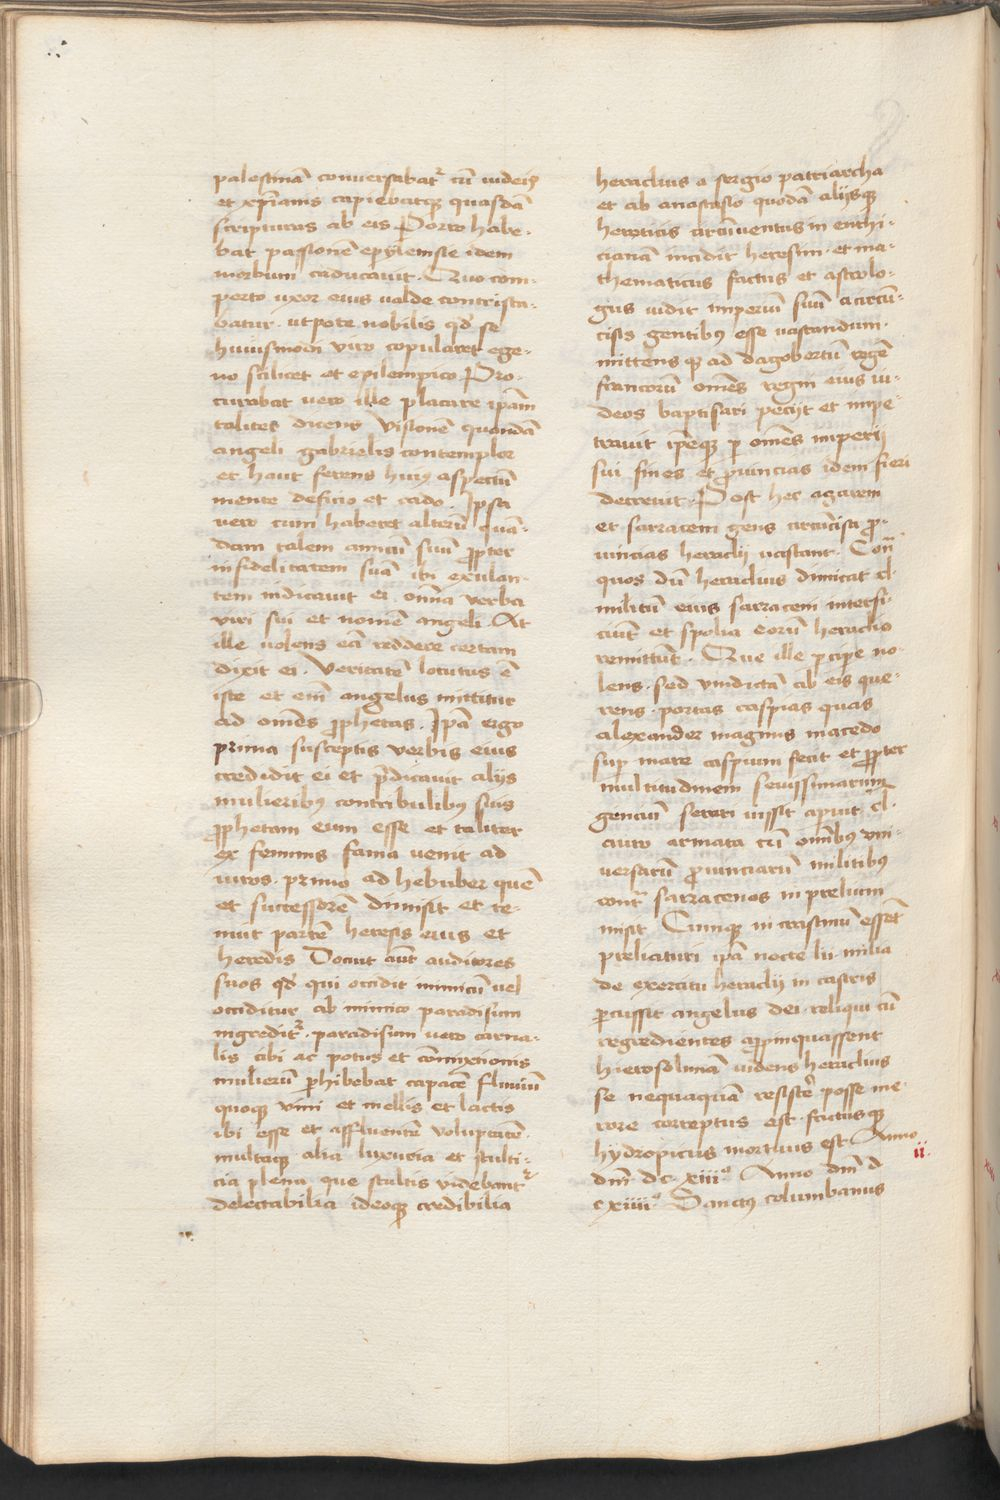 palestinā conversabat᷑ cū iudeis
et xp̄ianis capiebatqꝫ quasdā
scripturas ab eis Porro habe-
bat passionē epylensie idem
morbum caducauit. Quo com-
perto uxor eius valde contrista-
batur. utpote nobilis qd̄ se
huiusmodi viro copularet ege-
no scilicet et epilemptico Pro-
curabat vero ille placare ip̄am
taliter dicens visionē quandā
angeli gabrielis contemplor
et haut ferens huiꝰ aspectū
mente deficio et cado. Ipsa
vero cum haberet alterū quā-
dam talem amicū suū ꝓpter
infidelitatem suā ibi exulan-
tem indicauit ei om̄ia verba
viri sui et nomē angeli. At
ille uolens eā reddere certam
dixit ei. Veritatē locutus ē
iste et em̄ angelus mittitur
ad omēs ꝓphetas. Ip̄a ergo
prima susceptis verbis eius
credidit ei et p̄dicauit alijs
mulieribꝰ contribulibꝰ suis
ꝓphetam eum esse et taliter
ex feminis fama uenit ad
uiros. primo ad hebuber quē
et successorē dimisit et te-
nuit partē heresis eius et
heredis Docuit aūt auditores
suos qd̄ qui occidit inimicū vel
occiditur ab inimico paradisum
ingredit᷑. paradisum uero carna-
lis cibi ac potus et com̄ixtionis
mulierū ꝑhibebat capacē fluuiū
quoqꝫ vini et mellis et lactis
ibi esse et affluentē voluptatē.
multaqꝫ alia luxuria et stulti-
cia plena que stultis videbant᷑
delectabilia ideoqꝫ credibilia
heraclius a sergio patriarcha
et ab anastasio quodā alijsqꝫ
hereticis circūuentus in euthi-
cianā incidit heresim. et ma-
thematicus factus et astrolo-
gus uidit imperiū suū a circū-
cisis gentibꝰ esse uastandum.
mittens qꝫ ad dagobertū regē
francorū omēs regni eius iu-
deos baptisari peciit et impe-
trauit ip̄eqꝫ ꝑ omēs imperij
sui fines et ꝓuincias idem fieri
decreuit. Post hec agareni
et sarraceni gens circūcisa ꝓ-
uincias heraclij uastant. Con̄
quos dū heraclius dimicat cl.
militū eius sarraceni interfi-
ciūt et spolia eorū heraclio
remittūt. Que ille ꝑcipe no-
lens. sed vindictā ab eis que-
rens. portas caspias quas
alexander magnus macedo
sup̄ mare caspium fecit et ꝓpter
multitudinem seuissimarum
gencium serari iussit aperuit. cl.
auro armata cū om̄ibꝰ vni-
uersarū ꝓuinciarū militibꝰ
cont᷑ sarracenos in prelium
misit Cumqꝫ in crastinū essēt
preliaturi ip̄a nocte lii milia
de exercitu heraclij in castris
ꝑcussit angelus dei. reliqui cū
regredientes aꝓpinquassent
hierosolimā uidens heraclius
se nequaquā resistē posse me-
rore correptus est. factusqꝫ
hydropicus mortuus est. Anno
dn̄i dc xiiiᵒ Anno dn̄i d
cxiiiiᵒ Sanctꝰ columbanus
ii.